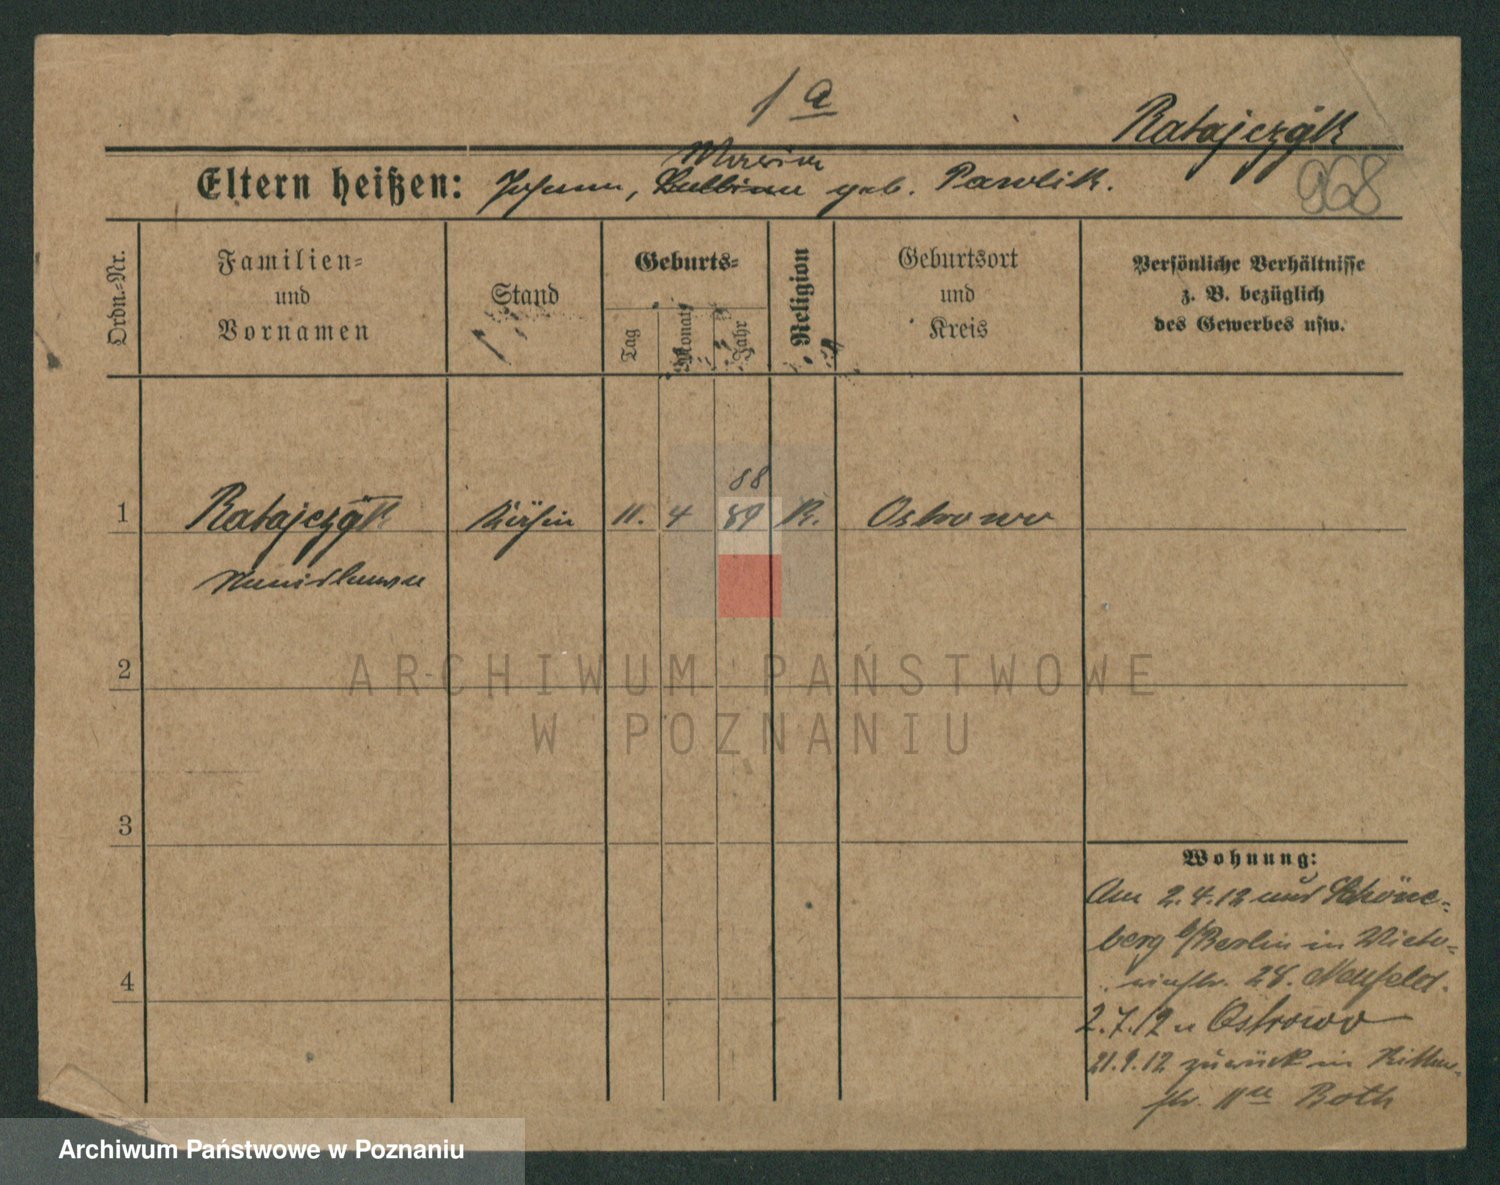 1 a
Ratajczÿk
Maria
Eltern heißen: Johann, geb. Pawlik.
968
Ordn.-Nr.
Familien-
und
Vornamen
Stand
Geburts-
Tag
Monat
Jahr
Religion
Geburtsort
und
Kreis
Persönliche Verhältnisse
z. B. bezüglich
des Gewerbes usw.
88
1 Ratajczÿk Köchin 11. 4 89 K. Ostrowo
Stanislawa
2
3
4
Wohnung:
Am 2.4.12 nach Schöne-
berg b/Berlin in Victo-
riastr. 28. Neufeld.
2.7.12 n Ostrowo
21.9.12 zurück in Ritter-
str. 11 Both
ARCHIWUM PAŃSTWOWE
W POZNANIU
Archiwum Państwowe w Poznaniu